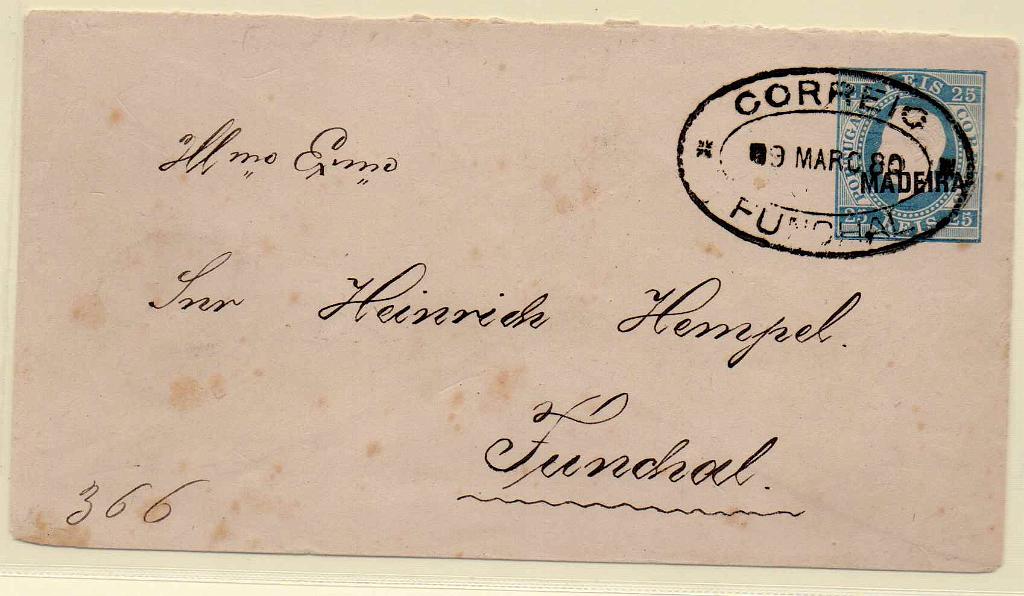 CORREIO
9 MARC 80
FUNCHAL
REIS 25
PORTUGAL
MADEIRA
25 REIS 25
Illmo Exmo
Snr Heinrich Hempel.
Funchal.
366